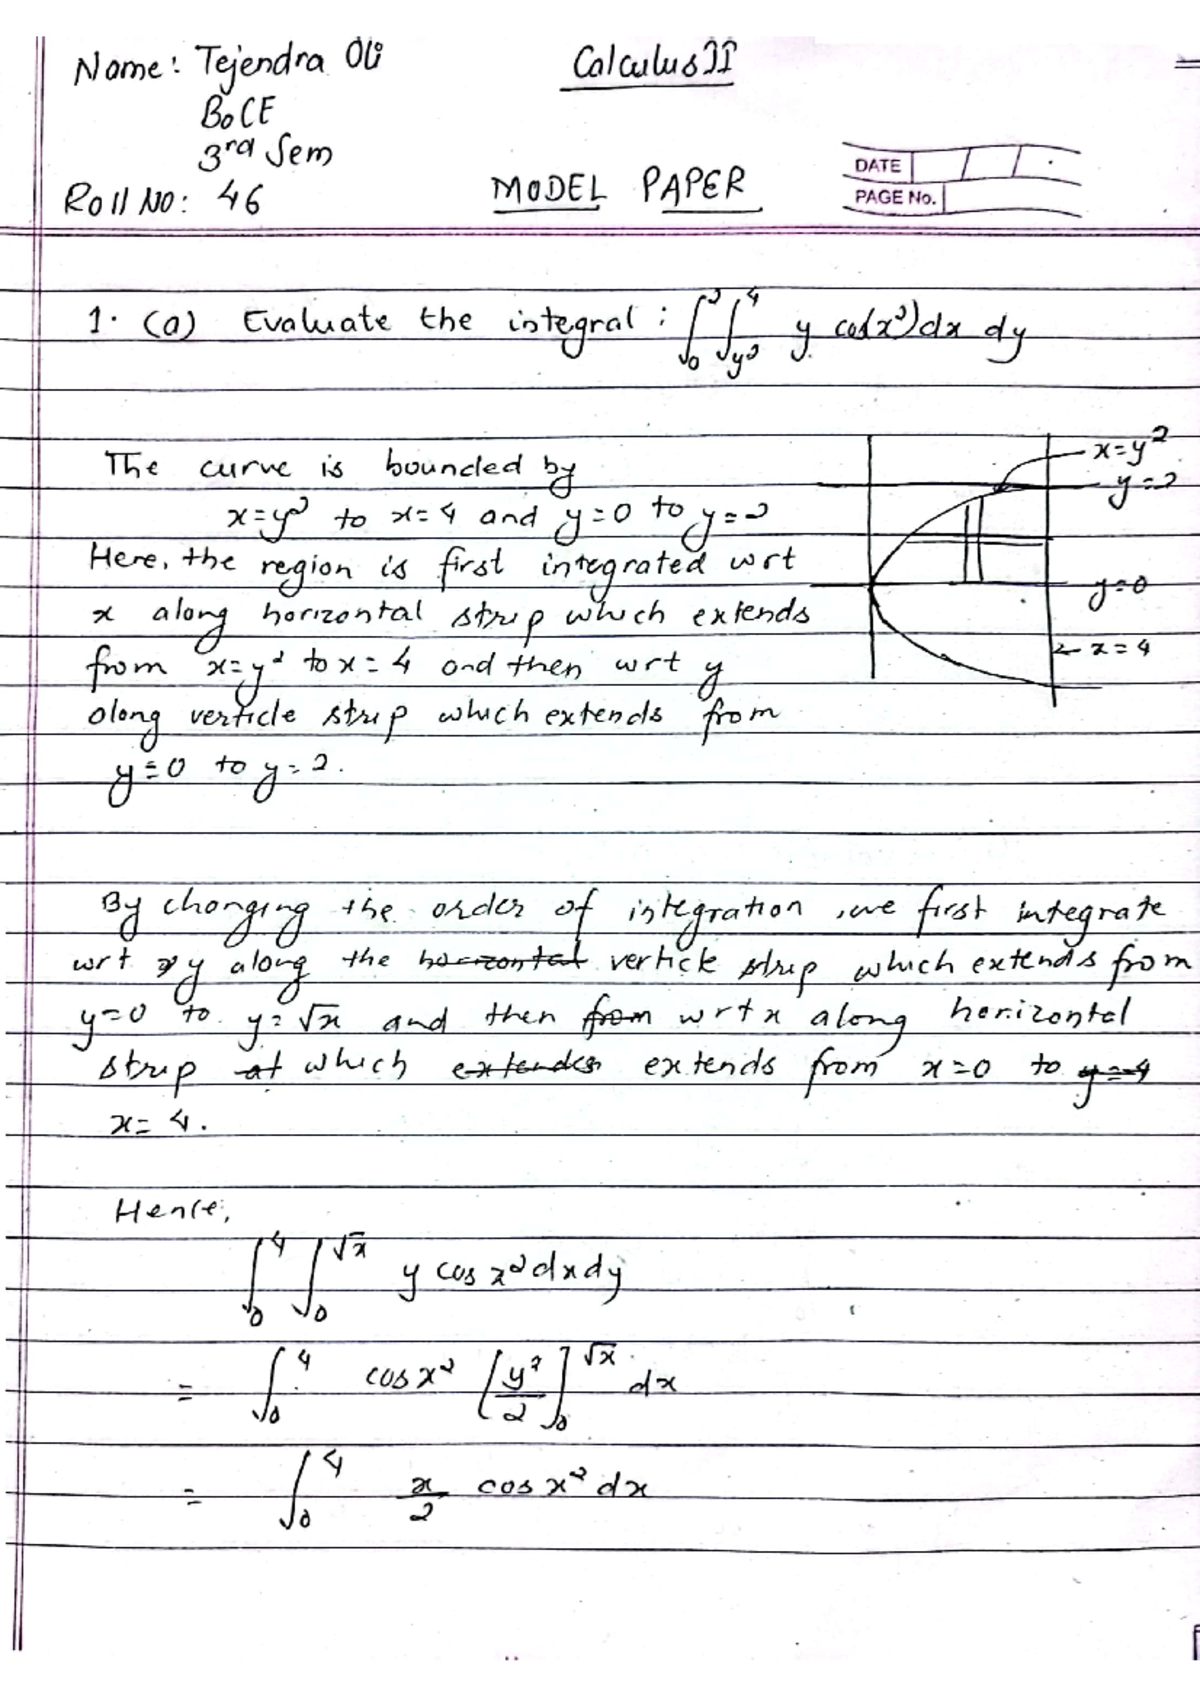 Name: Tejendra Oli
Calculus II
BoCE
3rd Sem
Roll No: 46
MODEL PAPER
DATE / / .
PAGE No.
1. (a) Evaluate the integral : ∫₀² ∫_{y²}⁴ y cos(x²) dx dy
The curve is bounded by
x=y² to x=4 and y=0 to y=2
Here, the region is first integrated wrt
x along horizontal strip which extends
from x=y² to x=4 and then wrt y
along verticle strip which extends from
y=0 to y=2.
x=y²
y=2
y=0
← x=4
By changing the order of integration, we first integrate
wrt y along the horizontal verticle strip which extends from
y=0 to y=√x and then from wrt x along horizontal
strip at which extendes extends from x=0 to y=4
x=4.
Hence,
∫₀⁴ ∫₀^√x y cos x² dx dy
= ∫₀⁴ cos x² [y²/2]₀^√x dx
= ∫₀⁴ x/2 cos x² dx